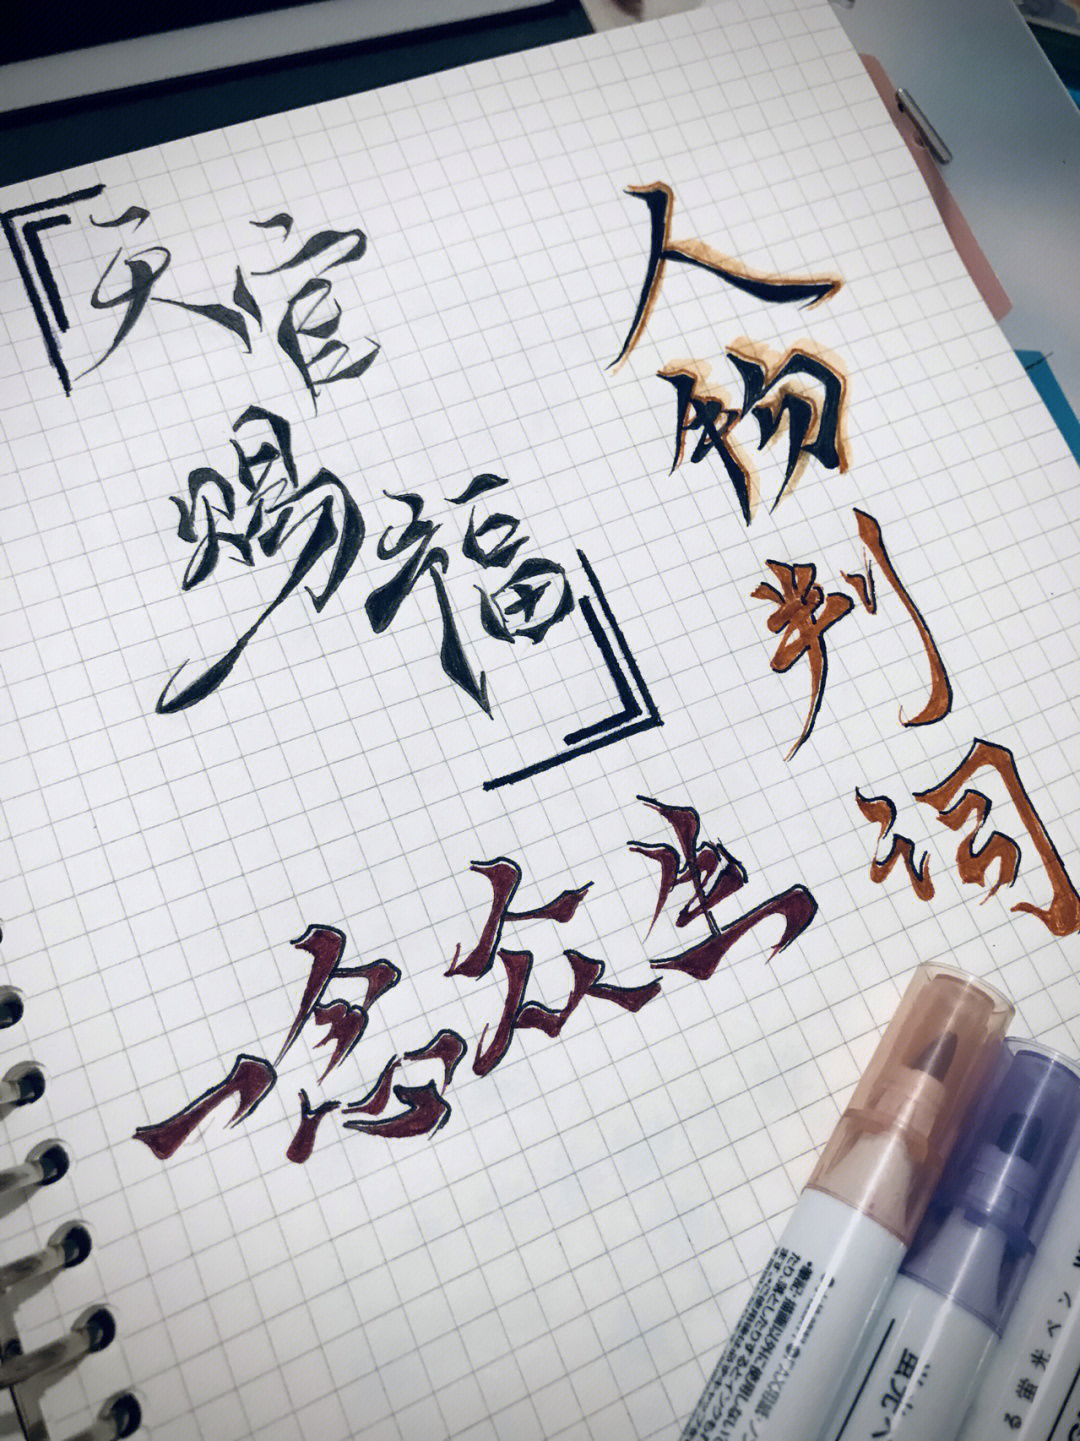 『天官
赐福』
人
物
判
词
一念众生